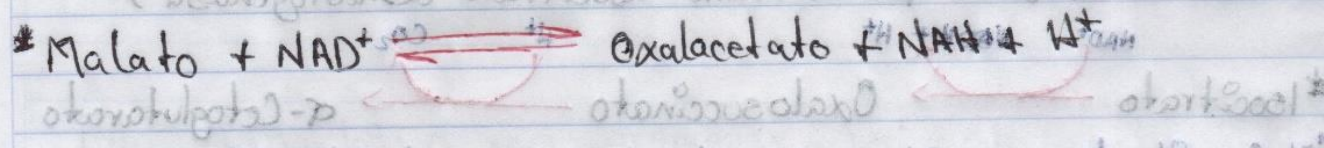 * Malato + NAD⁺ ⇌ Oxalacetato + NAH + H⁺